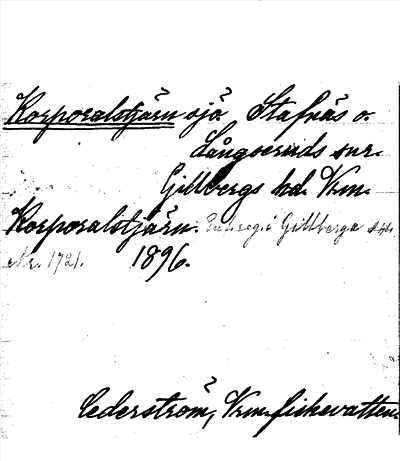 Korporalstjärn sjö Stafnäs o.
Långseruds snr.
Gillbergs hd. Vrm.
Korporalstjärn. Enl. seg. i Gillberga
Nr. 1721. 1896.
Cederström, Vrm. fiskevatten.